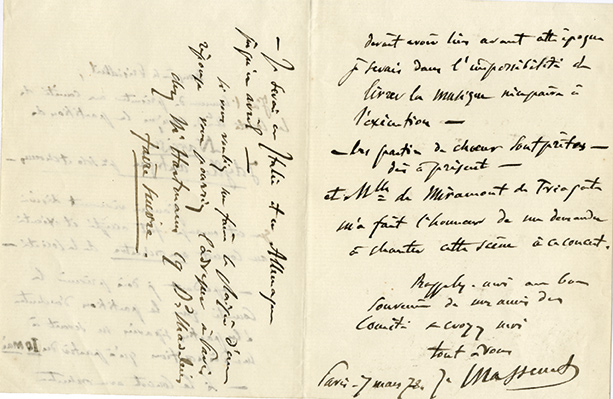 devant avoir lieu avant cette époque
je serais dans l'impossibilité de
livrer la musique nécessaire à
l'exécution —
— les parties de chœur sont prêtes —
dès à présent —
et Mlle de Miramont de Tréogate
m'a fait l'honneur de me demander
à chanter cette scène à ce concert.
Rappelez-moi au bon
souvenir de mes amis du
Comité & croyez moi
tout à vous
Paris - 7 mars 78. J. Massenet
— Je serai en Italie et en Allemagne
jusqu'en avril —
si vous voulez me faire le plaisir d'une
réponse vous pourriez l'adresser à Paris
chez Mr Hartmann 19 Bd Madeleine
faire suivre.
10 mai